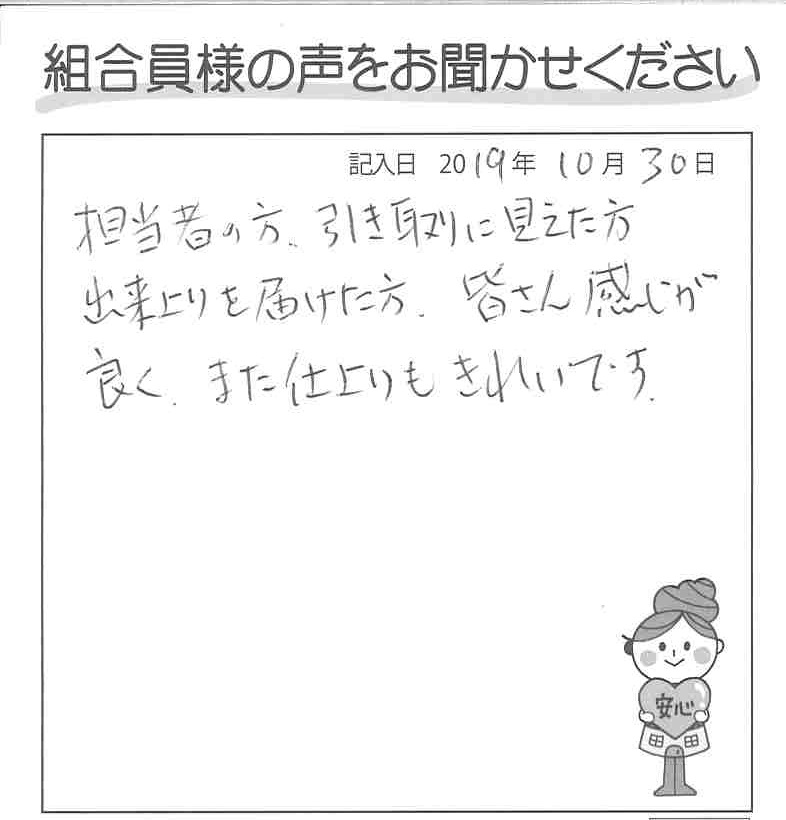 組合員様の声をお聞かせください
記入日 2019年 10月 30日
担当者の方、引き取りに見えた方
出来上りを届けた方、皆さん感じが
良く、また仕上りもきれいです。
安心